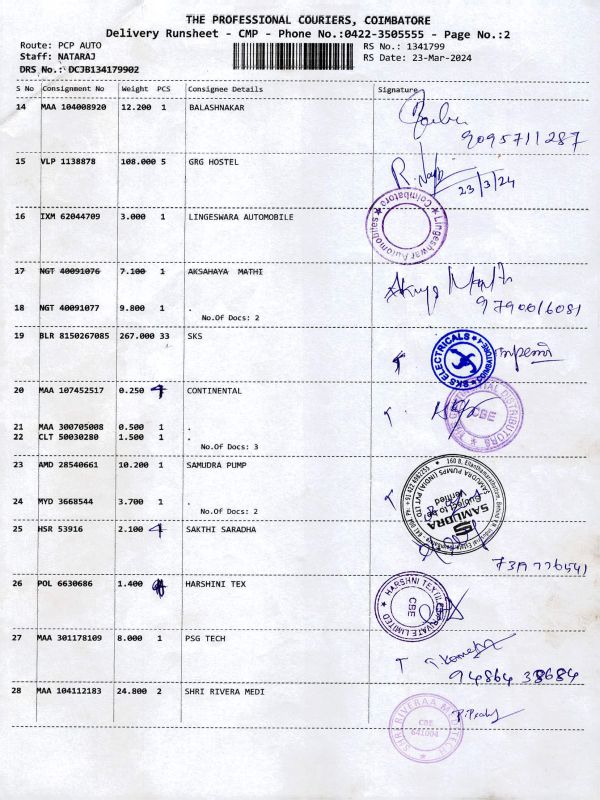 THE PROFESSIONAL COURIERS, COIMBATORE
Delivery Runsheet - CMP - Phone No.:0422-3505555 - Page No.:2
Route: PCP AUTO
RS No.: 1341799
Staff: NATARAJ
RS Date: 23-Mar-2024
DRS No.: DCJB134179902
S No Consignment No Weight PCS Consignee Details Signature
14 MAA 104008920 12.200 1 BALASHNAKAR
9095711287
15 VLP 1138878 108.000 5 GRG HOSTEL
23/3/24
16 IXM 62044709 3.000 1 LINGESWARA AUTOMOBILE
★ Lingeshwar Automobiles ★ Coimbatore
17 NGT 40091076 7.100 1 AKSAHAYA MATHI
18 NGT 40091077 9.800 1 .
9790016081
No.Of Docs: 2
19 BLR 8150267085 267.000 33 SKS
★ SKS ELECTRICALS ★
20 MAA 107452517 0.250 CONTINENTAL
DISTRIBUTORS
CBE
21 MAA 300705008 0.500 1 .
22 CLT 50030280 1.500 1 .
No.Of Docs: 3
23 AMD 28540661 10.200 1 SAMUDRA PUMP
SAMUDRA PUMPS (INDIA) PVT LTD
SAMUDRA
Subject to be
Verified
24 MYD 3668544 3.700 1 .
No.Of Docs: 2
25 HSR 53916 2.100 SAKTHI SARADHA
26 POL 6630686 1.400 HARSHINI TEX
★ HARSHNI TEXTILES PRIVATE LIMITED
CBE
27 MAA 301178109 8.000 1 PSG TECH
94864 38684
28 MAA 104112183 24.800 2 SHRI RIVERA MEDI
SHRI RIVERAA MEDI TECH
CBE
641004